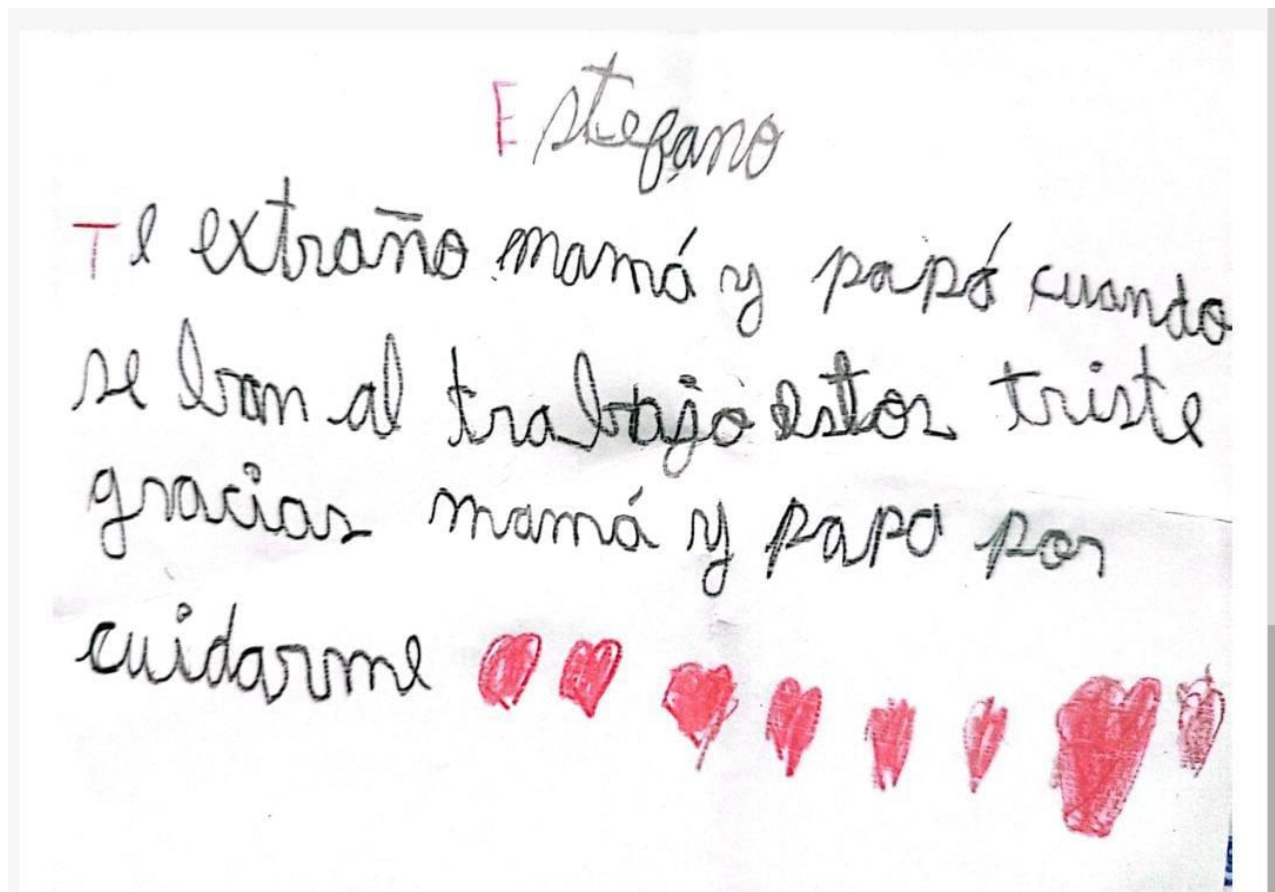 Estefano
Te extraño mamá y papá cuando
se ban al trabajo estos triste
gracias mamá y papa por
cuidarme